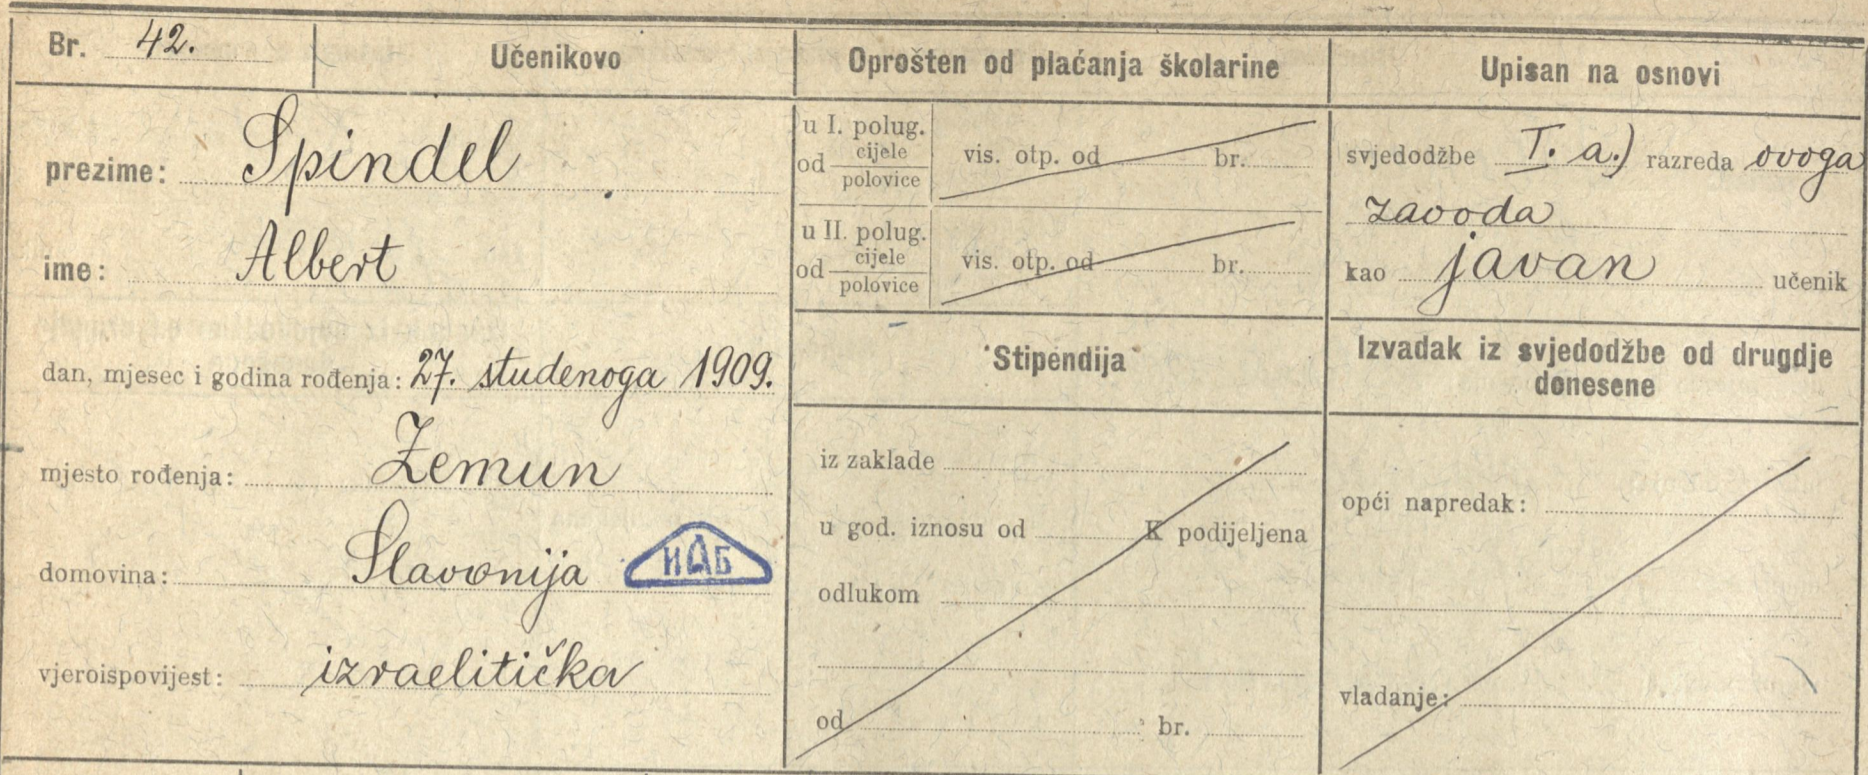 Br. 42.
Učenikovo
prezime: Spindel
ime: Albert
dan, mjesec i godina rođenja: 27. studenoga 1909.
mjesto rođenja: Zemun
domovina: Slavonija
ИАБ
vjeroispovijest: izraelitička
Oprošten od plaćanja školarine
u I. polug.
od cijele
polovice
vis. otp. od br.
u II. polug.
od cijele
polovice
vis. otp. od br.
Stipendija
iz zaklade
u god. iznosu od K podijeljena
odlukom
od br.
Upisan na osnovi
svjedodžbe I. a.) razreda ovoga
zavoda
kao javan učenik
Izvadak iz svjedodžbe od drugdje
donesene
opći napredak:
vladanje: